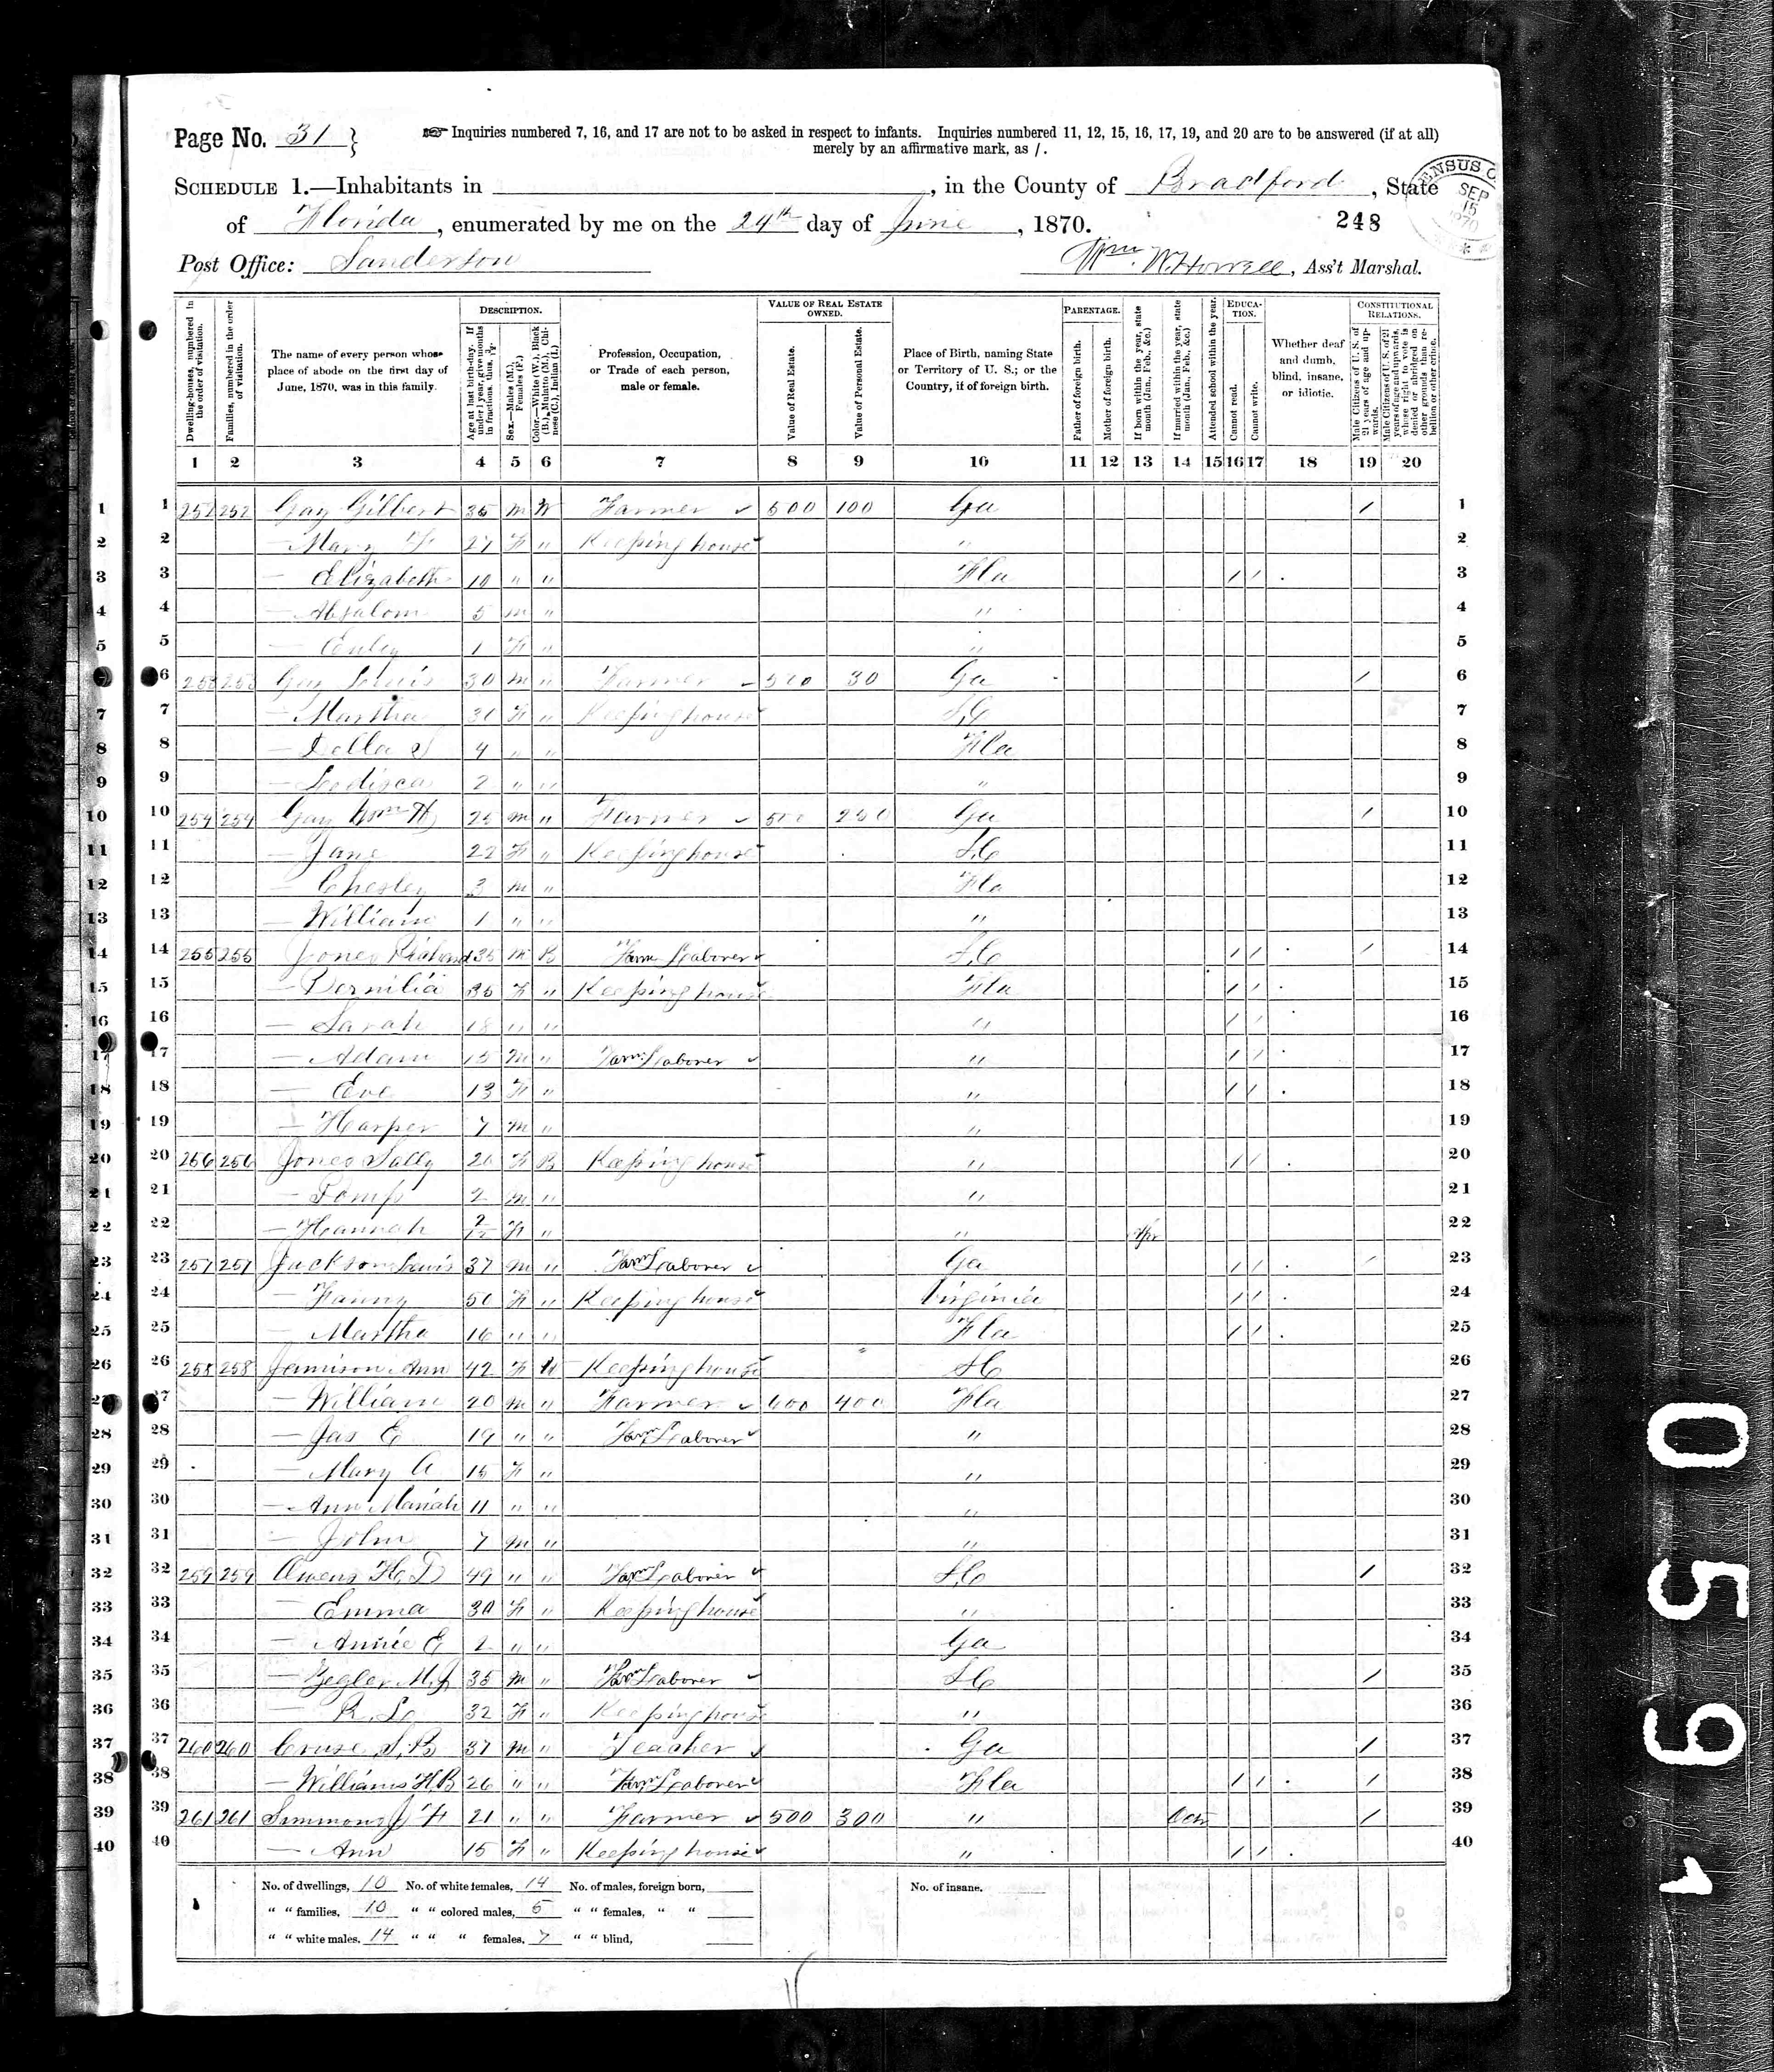 Page No. 31 }
Inquiries numbered 7, 16, and 17 are not to be asked in respect to infants. Inquiries numbered 11, 12, 15, 16, 17, 19, and 20 are to be answered (if at all)
merely by an affirmative mark, as /.
SCHEDULE 1.—Inhabitants in , in the County of Bradford, State
of Florida, enumerated by me on the 24th day of June, 1870.
248
CENSUS O
SEP
15
1870
Post Office: Sanderson
Wm. W. Howell, Ass't Marshal.
Dwelling-houses, numbered in the order of visitation.
Families, numbered in the order of visitation.
The name of every person whose place of abode on the first day of June, 1870, was in this family.
DESCRIPTION.
Age at last birth-day. If under 1 year, give months in fractions, thus, 3/12.
Sex.—Males (M.), Females (F.)
Color.—White (W.), Black (B.), Mulatto (M.), Chinese (C.), Indian (I.)
Profession, Occupation, or Trade of each person, male or female.
VALUE OF REAL ESTATE OWNED.
Value of Real Estate.
Value of Personal Estate.
Place of Birth, naming State or Territory of U. S.; or the Country, if of foreign birth.
PARENTAGE.
Father of foreign birth.
Mother of foreign birth.
If born within the year, state month (Jan., Feb., &c.)
If married within the year, state month (Jan., Feb., &c.)
Attended school within the year.
EDUCATION.
Cannot read.
Cannot write.
Whether deaf and dumb, blind, insane, or idiotic.
CONSTITUTIONAL RELATIONS.
Male Citizens of U. S. of 21 years of age and upwards.
Male Citizens of U. S. of 21 years of age and upwards, whose right to vote is denied or abridged on other grounds than rebellion or other crime.
1 2 3 4 5 6 7 8 9 10 11 12 13 14 15 16 17 18 19 20
1 1 252 252 Gay Gilbert 35 M W Farmer ✓ 500 100 Ga / 1
2 2 — Mary 27 F " Keeping house " 2
3 3 — Elizabeth 10 " " Fla / / 3
4 4 — Absalom 5 M " " 4
5 5 — 1 F " " 5
6 253 253 Gay Louis 30 M " Farmer ✓ 500 30 Ga / 6
7 7 — Martha 31 F " Keeping house S.C 7
8 8 — Della S 4 " " Fla 8
9 9 — 2 " " " 9
10 10 254 254 Gay Wm H 25 M " Farmer ✓ 500 250 Ga / 10
11 11 — Jane 22 F " Keeping house S.C 11
12 12 — Chesley 3 M " Fla 12
13 13 — William 1 " " " 13
14 14 255 255 Jones Richard 35 M B Farm Laborer ✓ S.C / / / 14
15 15 — 35 F " Keeping house Fla / / 15
16 16 — Sarah 18 " " " / / 16
17 17 — Adam 15 M " Farm Laborer ✓ " / / 17
18 18 — Eve 13 F " " / / 18
19 19 — Harper 7 M " " 19
20 20 256 256 Jones Sally 20 F B Keeping house " / / 20
21 21 — 2 M " " 21
22 22 — Hannah 2/12 F " " Apr 22
23 23 257 257 Jackson Lewis 37 M " Farm Laborer ✓ Ga / / / 23
24 24 — Fanny 50 F " Keeping house Virginia / / 24
25 25 — Martha 16 " " Fla / / 25
26 26 258 258 Jamison Ann 42 F W Keeping house S.C 26
27 27 — William 20 M " Farmer ✓ 400 400 Fla 27
28 28 — Jas E 19 " " Farm Laborer ✓ " 28
29 29 — Mary A 15 F " " 29
30 30 — Ann Mariah 11 " " " 30
31 31 — John 7 M " " 31
32 32 259 259 Owens H. D 49 " " Farm Laborer ✓ S.C / 32
33 33 — Emma 30 F " Keeping house " 33
34 34 — Annie E 2 " " Ga 34
35 35 — Zegler M. J 35 M " Farm Laborer ✓ S.C / 35
36 36 — R. L. 32 F " Keeping house " 36
37 37 260 260 Cruse S. B 37 M " Teacher ✓ Ga / 37
38 38 — Williams H. B 26 " " Farm Laborer ✓ Fla / / / 38
39 39 261 261 Simmons J H 21 " " Farmer ✓ 500 300 " Oct / 39
40 40 — Ann 15 F " Keeping house " / / 40
No. of dwellings, 10 No. of white females, 14 No. of males, foreign born, No. of insane,
" " families, 10 " " colored males, 5 " " females, " "
" " white males, 14 " " " females, 7 " " blind,
0591